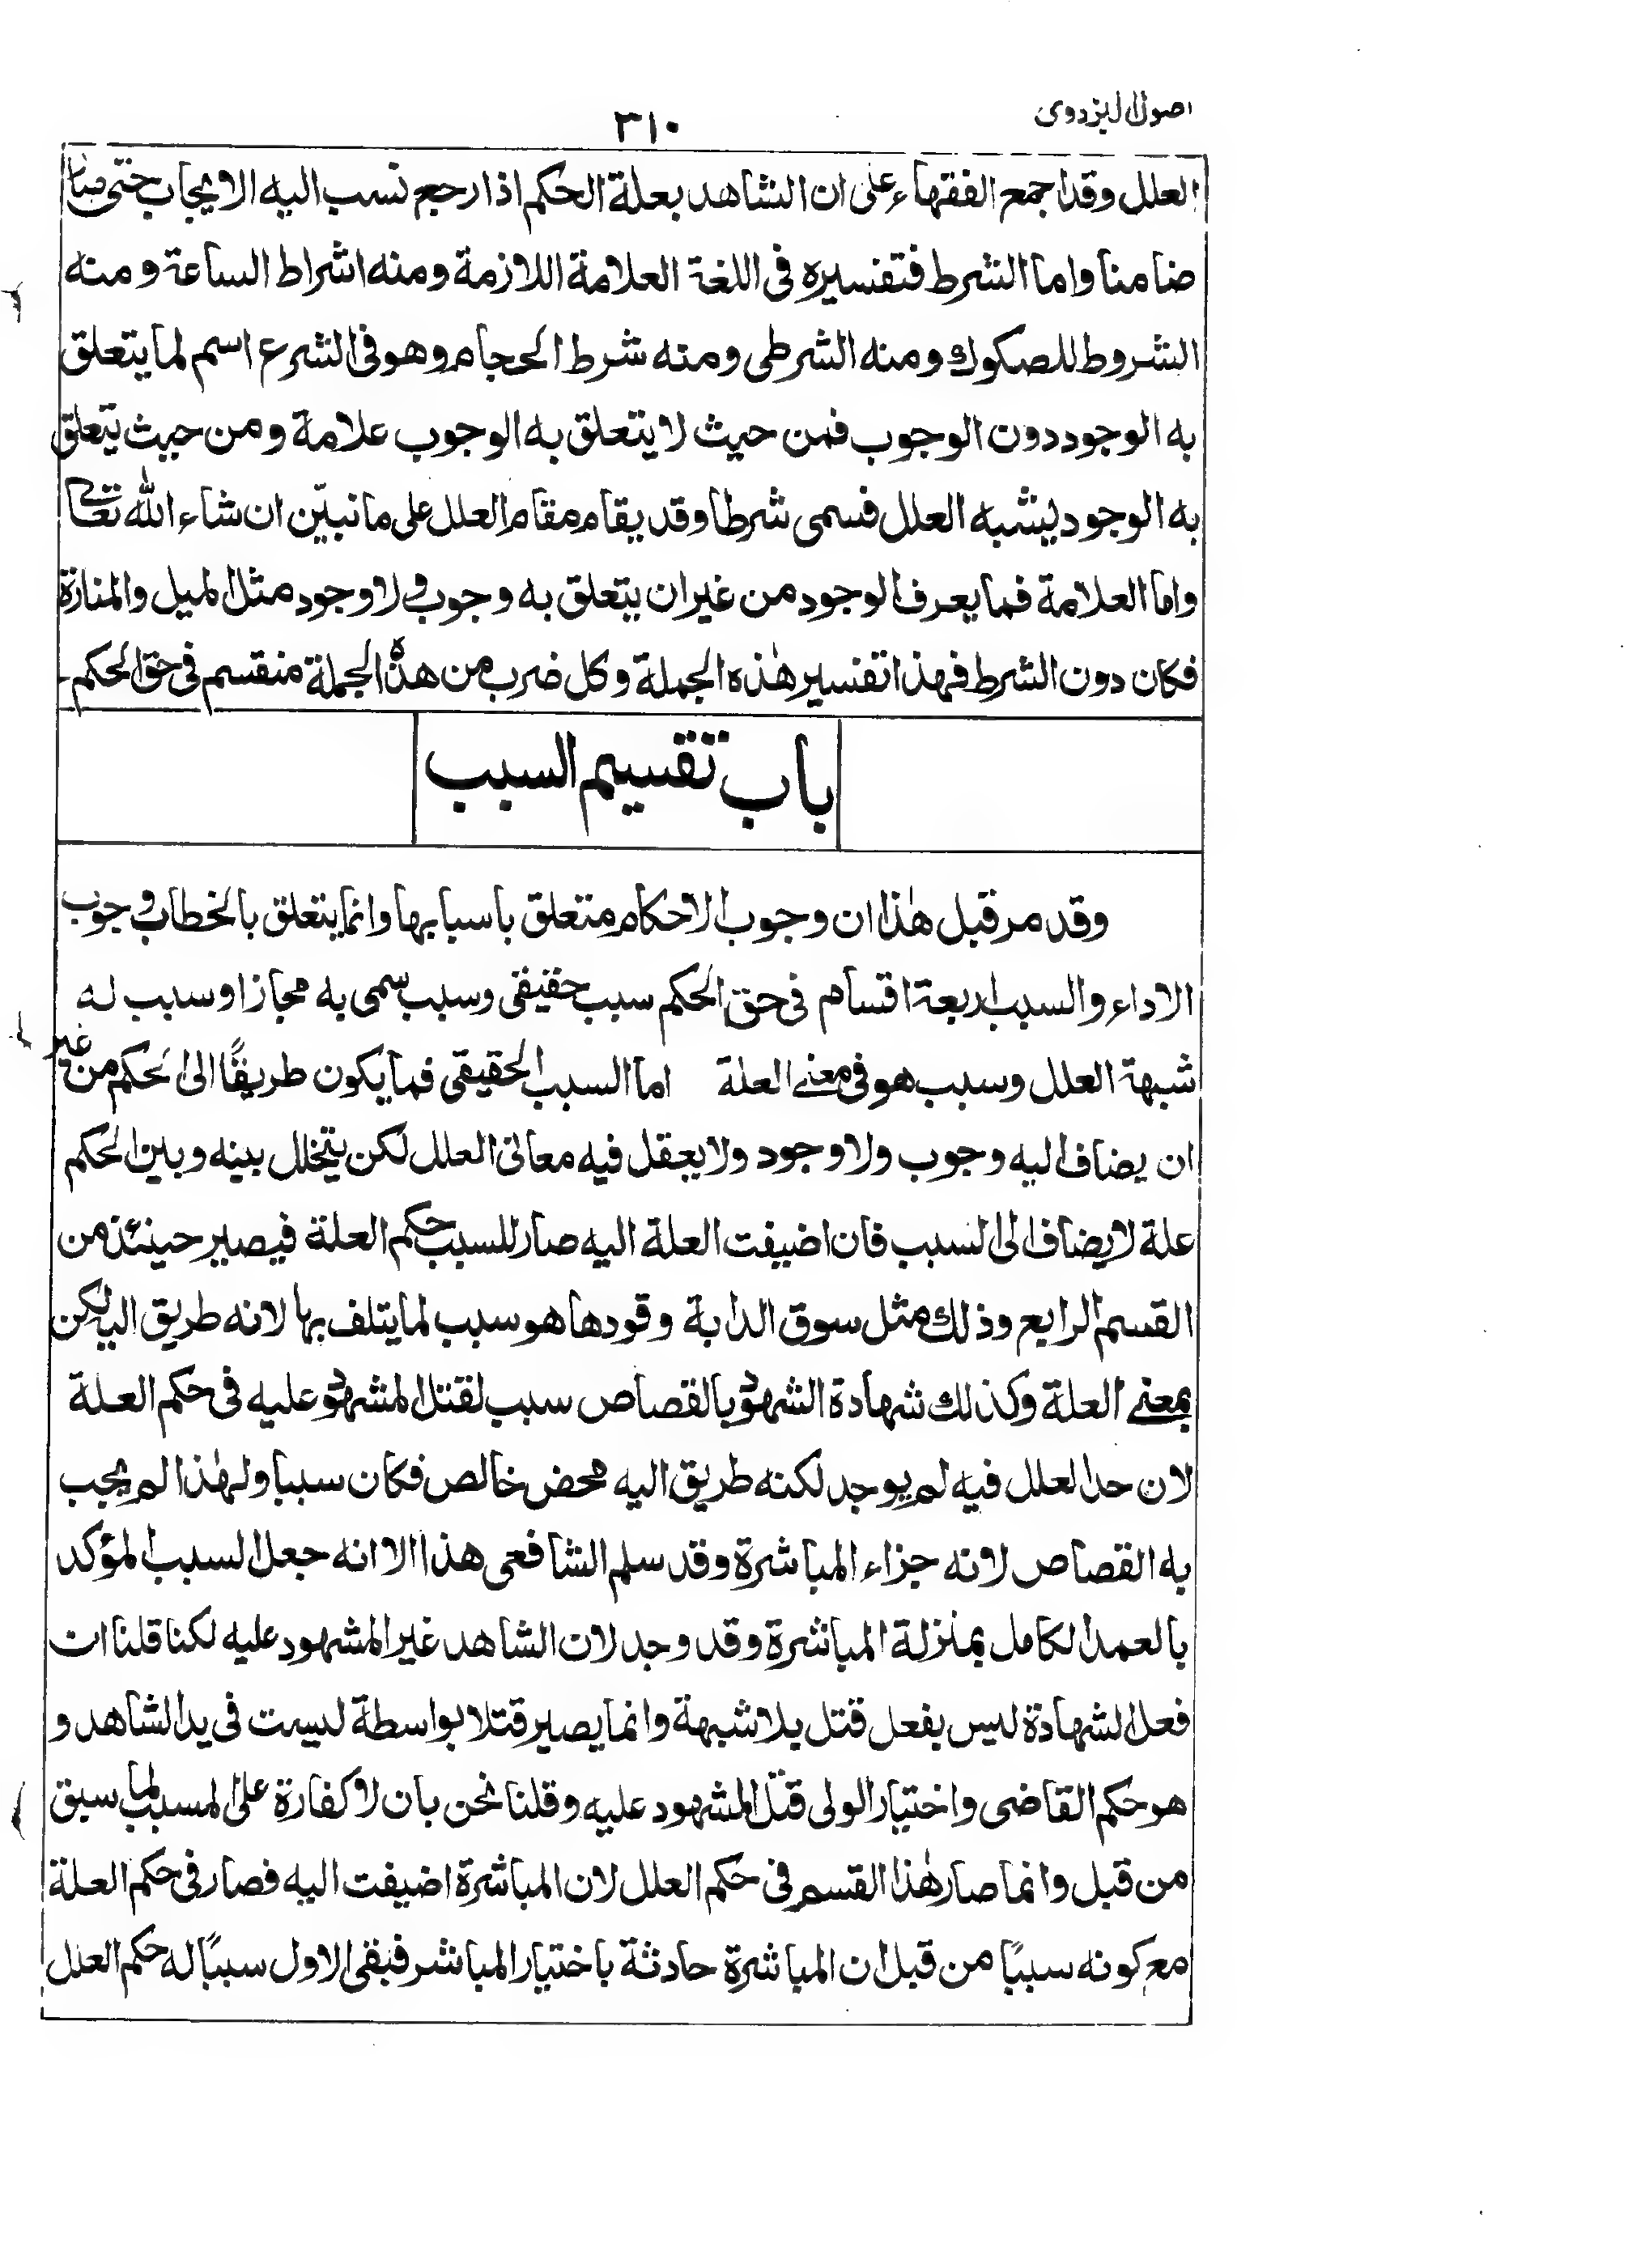 اصول البزدوی
۳۱۰
العلل وقد اجمع الفقهاء على ان الشاهد بعلة الحكم اذا رجع نسب اليه الايجاب حتى صار
ضامنا واما الشرط فتفسيره فى اللغة العلامة اللازمة ومنه اشراط الساعة ومنه
الشروط للصكوك ومنه الشرطى ومنه شرط الحجام وهو فى الشرع اسم لما يتعلق
به الوجود دون الوجوب فمن حيث لا يتعلق به الوجوب علامة ومن حيث يتعلق
به الوجود يشبه العلل فسمى شرطا وقد يقام مقام العلل على ما نبيّن ان شاء الله تعالى
واما العلامة فما يعرف الوجود من غير ان يتعلق به وجوب ولا وجود مثل الميل والمنارة
فكان دون الشرط فهذا تفسير هٰذه الجملة وكل ضرب من هذه الجملة منقسم فى حق الحكم
باب تقسيم السبب
وقد مر قبل هٰذا ان وجوب الاحكام متعلق باسبابها وانما يتعلق بالخطاب وجوب
الاداء والسبب اربعة اقسام فى حق الحكم سبب حقيقى وسبب سمى به مجازا وسبب له
شبهة العلل وسبب هو فى معنى العلة اما السبب الحقيقى فما يكون طريقًا الى الحكم من غير
ان يضاف اليه وجوب ولا وجود ولا يعقل فيه معانى العلل لكن يتخلل بينه وبين الحكم
علة لا يضاف الى السبب فان اضيفت العلة اليه صار للسبب حكم العلة فيصير حينئذ من
القسم الرابع وذلك مثل سوق الدابة وقودها هو سبب لما يتلف بها لانه طريق اليه لكن
بمعنى العلة وكذلك شهادة الشهود بالقصاص سبب لقتل المشهود عليه فى حكم العلة
لان حد العلل فيه لم يوجد لكنه طريق اليه محض خالص فكان سببا ولهٰذا لم يجب
به القصاص لانه جزاء المباشرة وقد سلم الشافعى هذا الا انه جعل السبب المؤكد
بالعمد الكامل بمنزلة المباشرة وقد وجد لان الشاهد غير المشهود عليه لكنا قلنا ان
فعل الشهادة ليس بفعل قتل بلا شبهة وانما يصير قتلا بواسطة ليست فى يد الشاهد و
هو حكم القاضى واختيار الولى قتل المشهود عليه وقلنا نحن بان لا كفارة على المسبب لما سبق
من قبل وانما صار هٰذا القسم فى حكم العلل لان المباشرة اضيفت اليه فصار فى حكم العلة
مع كونه سببًا من قبل ان المباشرة حادثة باختيار المباشر فبقى الاول سببًا له حكم العلل